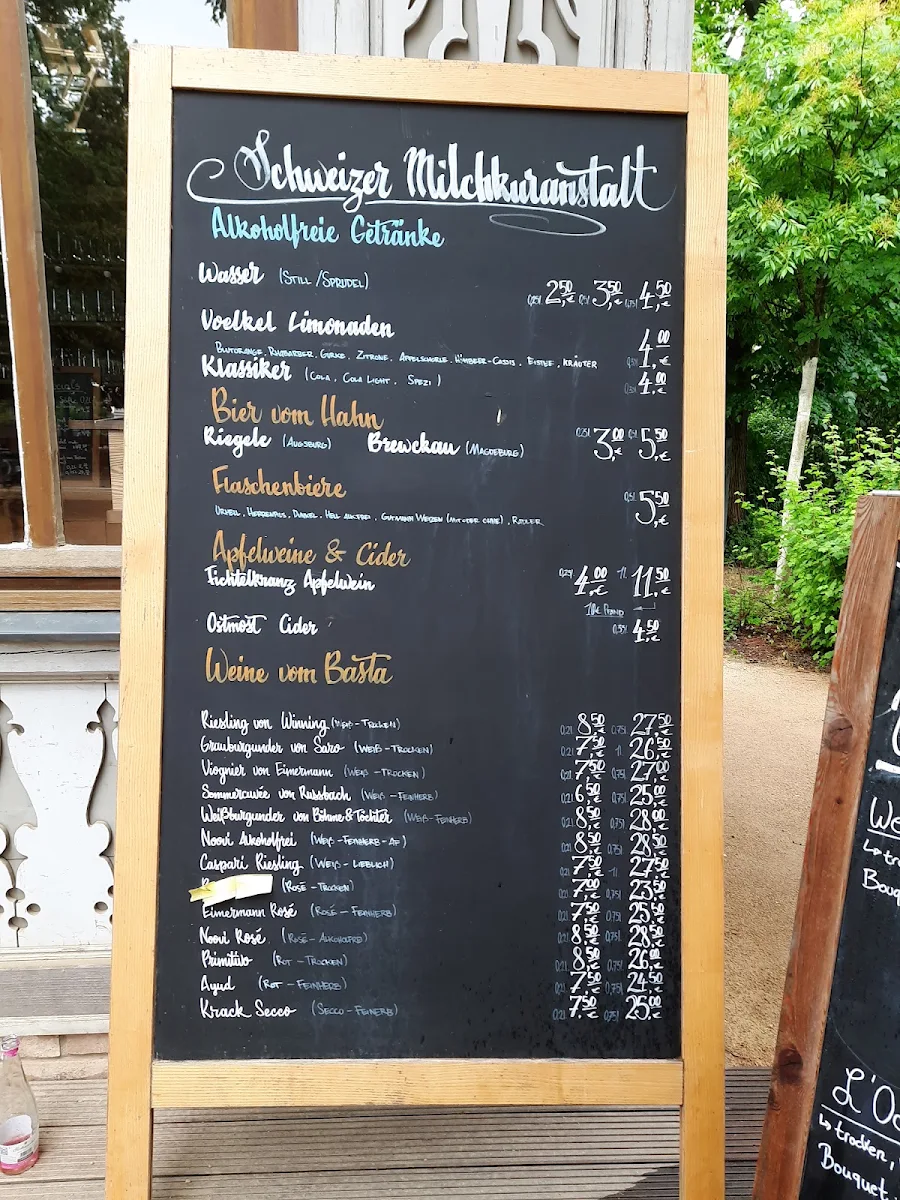 Schweizer Milchkuranstalt
Alkoholfreie Getränke
Wasser (Still / Sprudel) 0,25l 2,50€ 0,5l 3,50€ 0,75l 4,50€
Voelkel Limonaden 4,00€
Blutorange, Rhabarber, Gurke, Zitrone, Apfelschorle, Himbeer-Cassis, Eistee, Kräuter
Klassiker (Cola, Cola Light, Spezi) 4,00€
Bier vom Hahn
Riegele (Augsburg) Brewckau (Magdeburg) 0,25l 3,00€ 0,5l 5,50€
Flaschenbiere
Urhell, Herrenpils, Dunkel, Hell Alkfrei, Gutmann Weizen (mit oder ohne), Radler 0,5l 5,50€
Apfelweine & Cider
Fichtelkranz Apfelwein 4,00€ 1l 11,50€
Pfand
Ostmost Cider 0,33l 4,50€
Weine vom Basta
Riesling von Winning (Weiß - Trocken) 0,2l 8,50€ 0,75l 27,50€
Grauburgunder von Saro (Weiß - Trocken) 0,2l 7,50€ 1l 26,50€
Viognier von Eimermann (Weiß - Trocken) 0,2l 7,50€ 0,75l 27,00€
Sommercuvée von Russbach (Weiß - Feinherb) 0,2l 6,50€ 0,75l 25,00€
Weißburgunder von Böhme & Töchter (Weiß - Feinherb) 0,2l 8,50€ 0,75l 28,00€
Noovi Alkoholfrei (Weiß - Feinherb - AF) 0,2l 8,50€ 0,75l 28,50€
Caspari Riesling (Weiß - Lieblich) 0,2l 7,50€ 1l 27,50€
(Rosé - Trocken) 0,2l 7,00€ 0,75l 23,50€
Eimermann Rosé (Rosé - Feinherb) 0,2l 7,50€ 0,75l 25,50€
Noovi Rosé (Rosé - Alkoholfrei) 0,2l 8,50€ 0,75l 28,50€
Primitivo (Rot - Trocken) 0,2l 8,50€ 0,75l 26,00€
Ayud (Rot - Feinherb) 0,2l 7,50€ 0,75l 24,50€
Krack Secco (Secco - Feinerb) 0,2l 7,50€ 0,75l 25,00€
We
↳ tr
Bouq
L'Oc
↳ trocken,
Bouquet